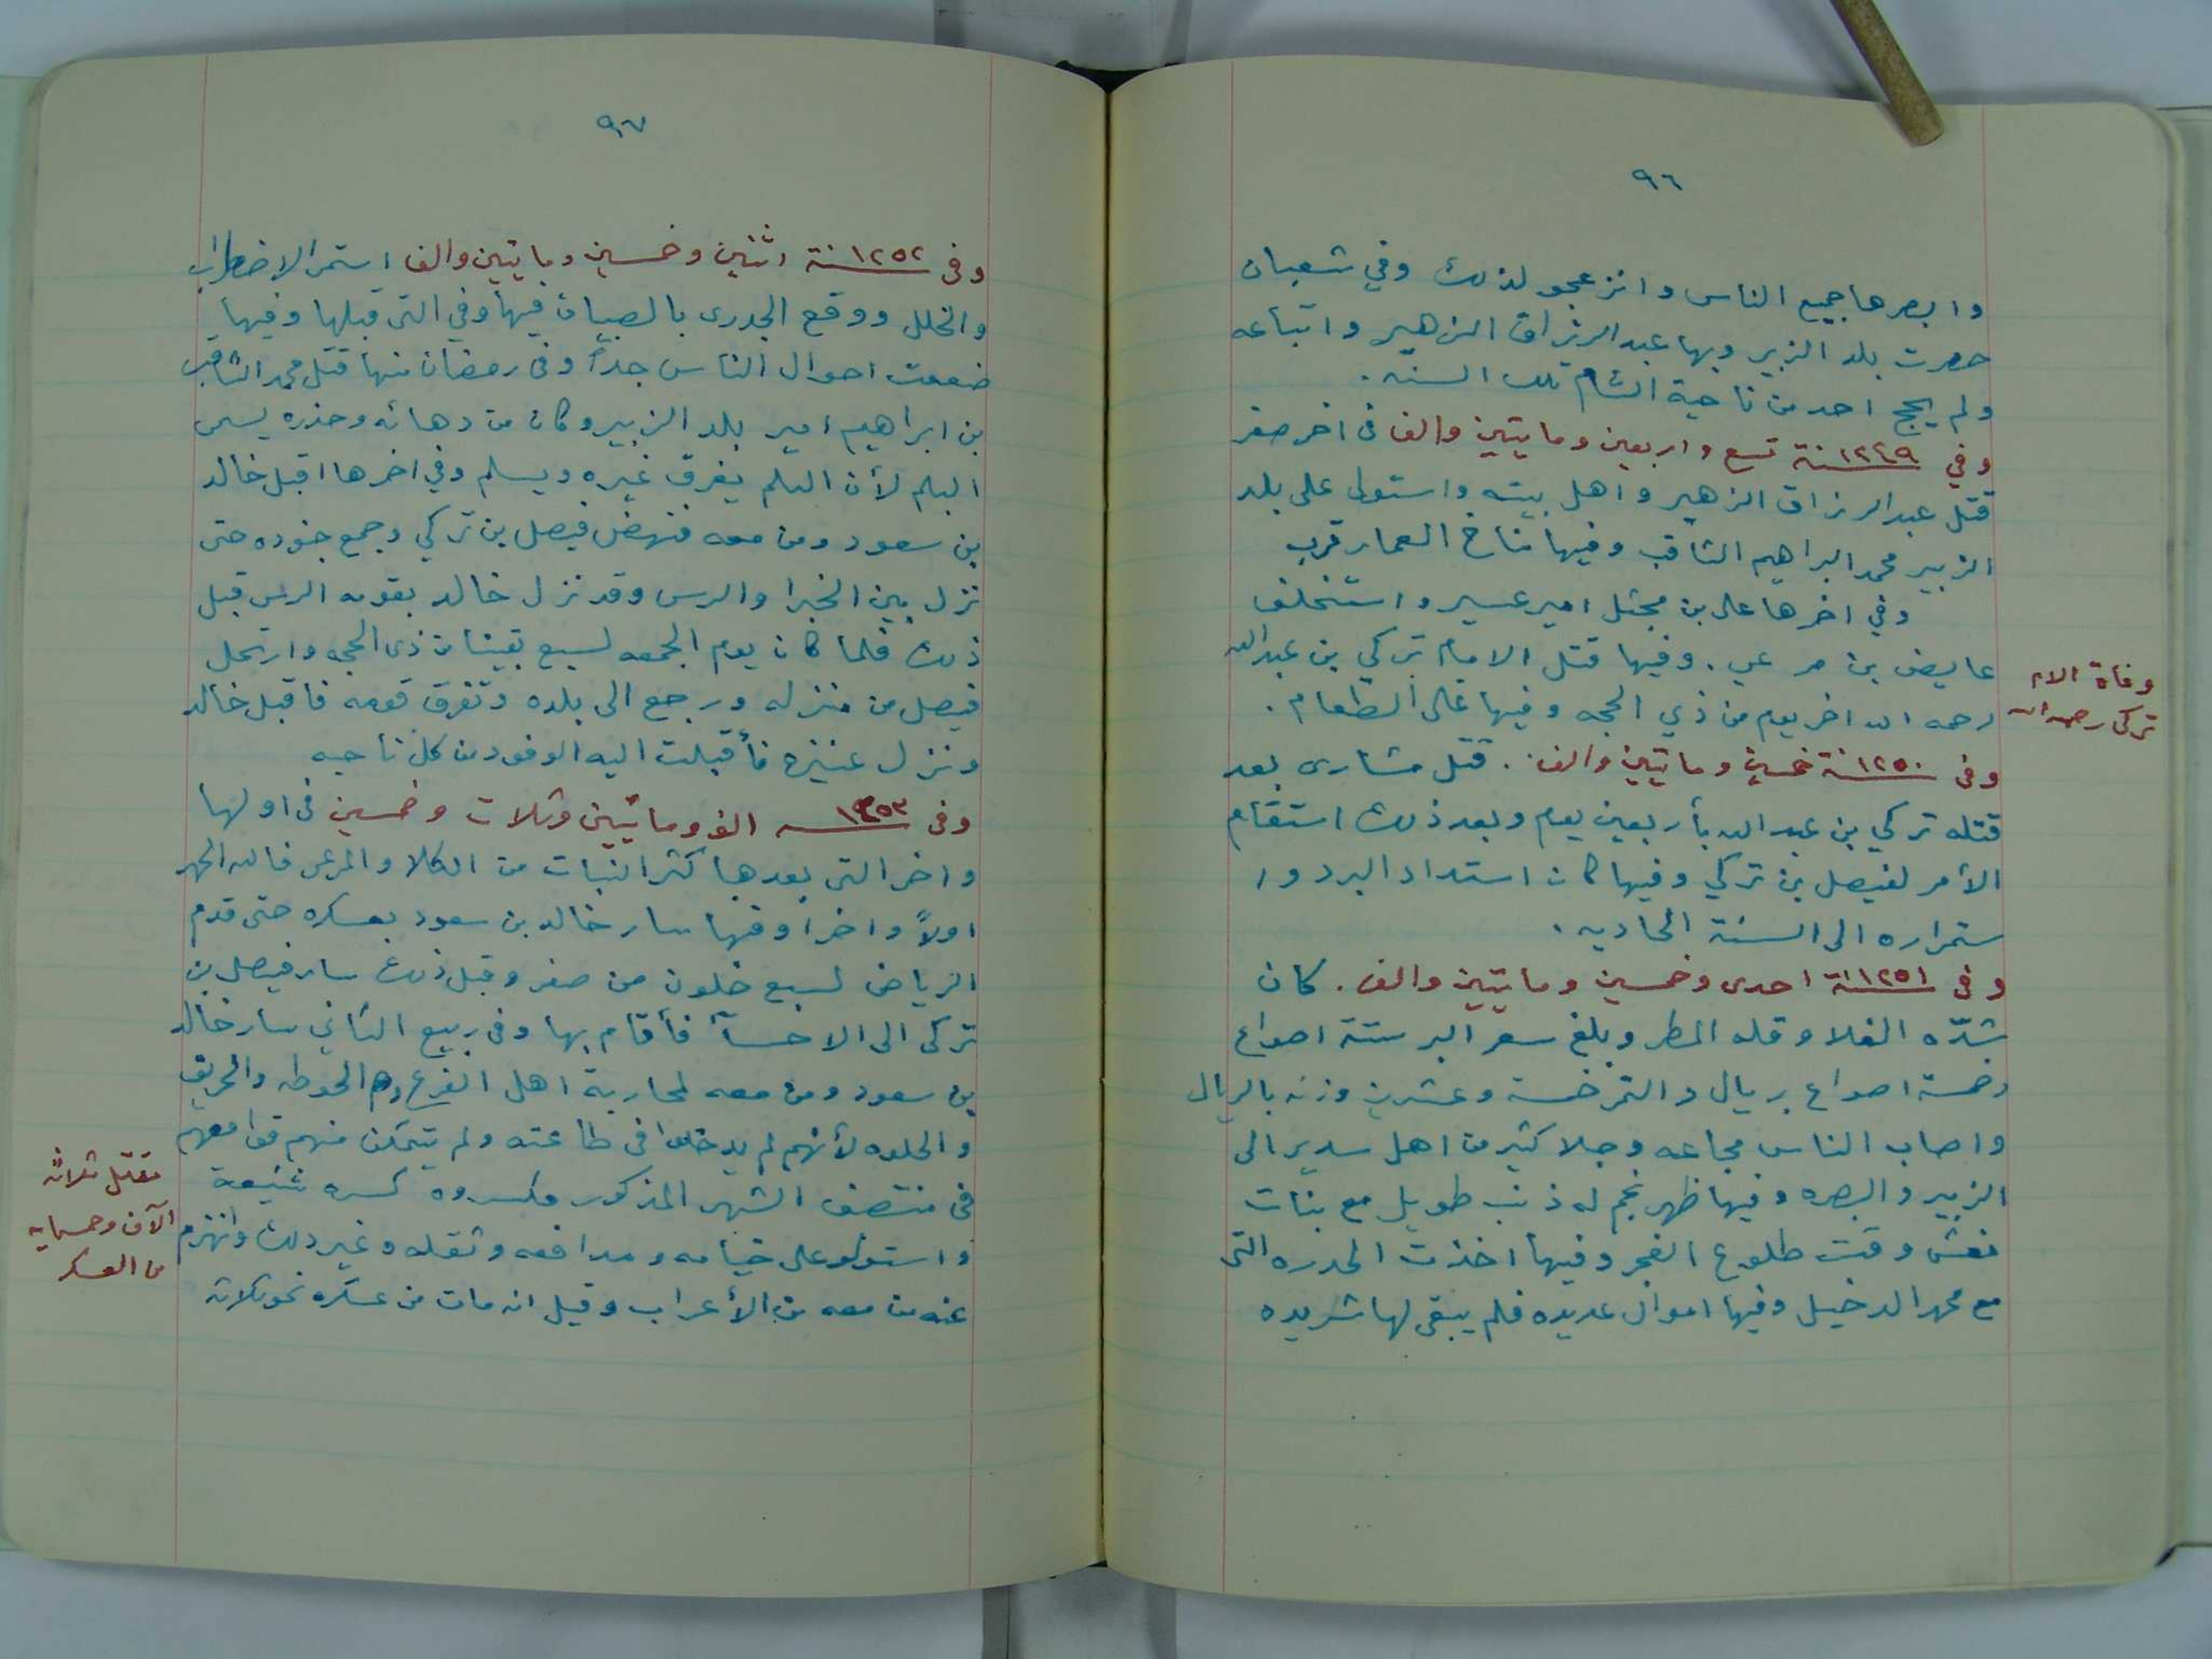 ٩٦
وابصرها جميع الناس وانزعجو لذلك وفي شعبان
حصرت بلد الزبير وبها عبدالرزاق الزهير واتباعه
ولم يحج احد من ناحية الشام تلك السنه .
وفي ١٢٤٩ سنة تسع واربعين ومايتين والف فى اخر صفر
قتل عبدالرزاق الزهير واهل بيته واستولى على بلد
الزبير محمد البراهيم الثاقب وفيها مناخ العمار قرب
وفي اخرها على بن مجثل امير عسير واستخلف
عايض بن مرعي . وفيها قتل الامام تركي بن عبدالله
رحمه الله اخر يوم من ذي الحجه وفيها غلى الطعام .
وفاة الام
تركى رحمه الله
وفى ١٢٥٠ سنة خمسين ومايتين والف . قتل مشارى بعد
قتله تركي بن عبدالله بأربعين يوم وبعد ذلك استقام
الأمر لفيصل بن تركي وفيها كان استداد البرد وا
ستمراره الى السنة الحاديه .
وفى ١٢٥١ سنة احدى وخمسين ومايتين والف . كان
شدّه الغلا وقله المطر وبلغ سعر البر ستة اصواع
وخمسة اصواع بريال والتمر خمسة وعشرين وزنه بالريال
واصاب الناس مجاعه وجلا كثير من اهل سدير الى
الزبير والبصره وفيها ظهر نجم له ذنب طويل مع بنات
نعش وقت طلوع الفجر وفيها اخذت الحدره التى
مع محمد الدخيل وفيها اموال عديده فلم يبقى لها شريده
٩٧
وفى ١٢٥٢ سنة اثنين وخمسين ومايتين والف استمر الاضطراب
والخلل ووقع الجدرى بالصبيان فيها وفي التى قبلها وفيها
ضعفت احوال الناس جداً وفى رمضان منها قتل محمد الثاقب
بن ابراهيم امير بلد الزبير وكان من دهائه وحذره يسمى
البلم لأن البلم يغرق غيره ويسلم وفي اخرها اقبل خالد
بن سعود ومن معه فنهض فيصل بن تركي وجمع جنوده حتى
نزل بين الخبرا والرس وقد نزل خالد بقومه الرس قبل
ذلك فلما كان يوم الجمعه لسبع بقينا من ذى الحجه وارتحل
فيصل من منزله ورجع الى بلده وتفرق قومه فاقبل خالد
ونزل عنيزه فأقبلت اليه الوفود من كل ناحيه
وفى ١٢٥٣ سنه الف ومائتين وثلاث وخمسين فى اولها
واخر التى بعدها كثر النبات من الكلا والمرعى فالله الحمد
اولاً واخرا وفيها سار خالد بن سعود بعسكره حتى قدم
الرياض لسبع خلون من صفر وقبل ذلك سار فيصل بن
تركى الى الاحسآ فأقام بها وفى ربيع الثاني سار خالد
بن سعود ومن معه لمحاربة اهل الفرع وهم الحوطه والحريق
والحلوه لأنهم لم يدخلوا فى طاعته ولم يتمكن منهم معهم
فى منتصف الشهر المذكور فكسروه كسره شنيعة
واستولو على خيامه ومدافعه وثقله وغير ذلك وانهزم
عنه من معه من الأعراب وقيل انه مات من عسكره نحو ثلاثه
مقتل ثلاثه
الآف وخمسمايه
من العسكر